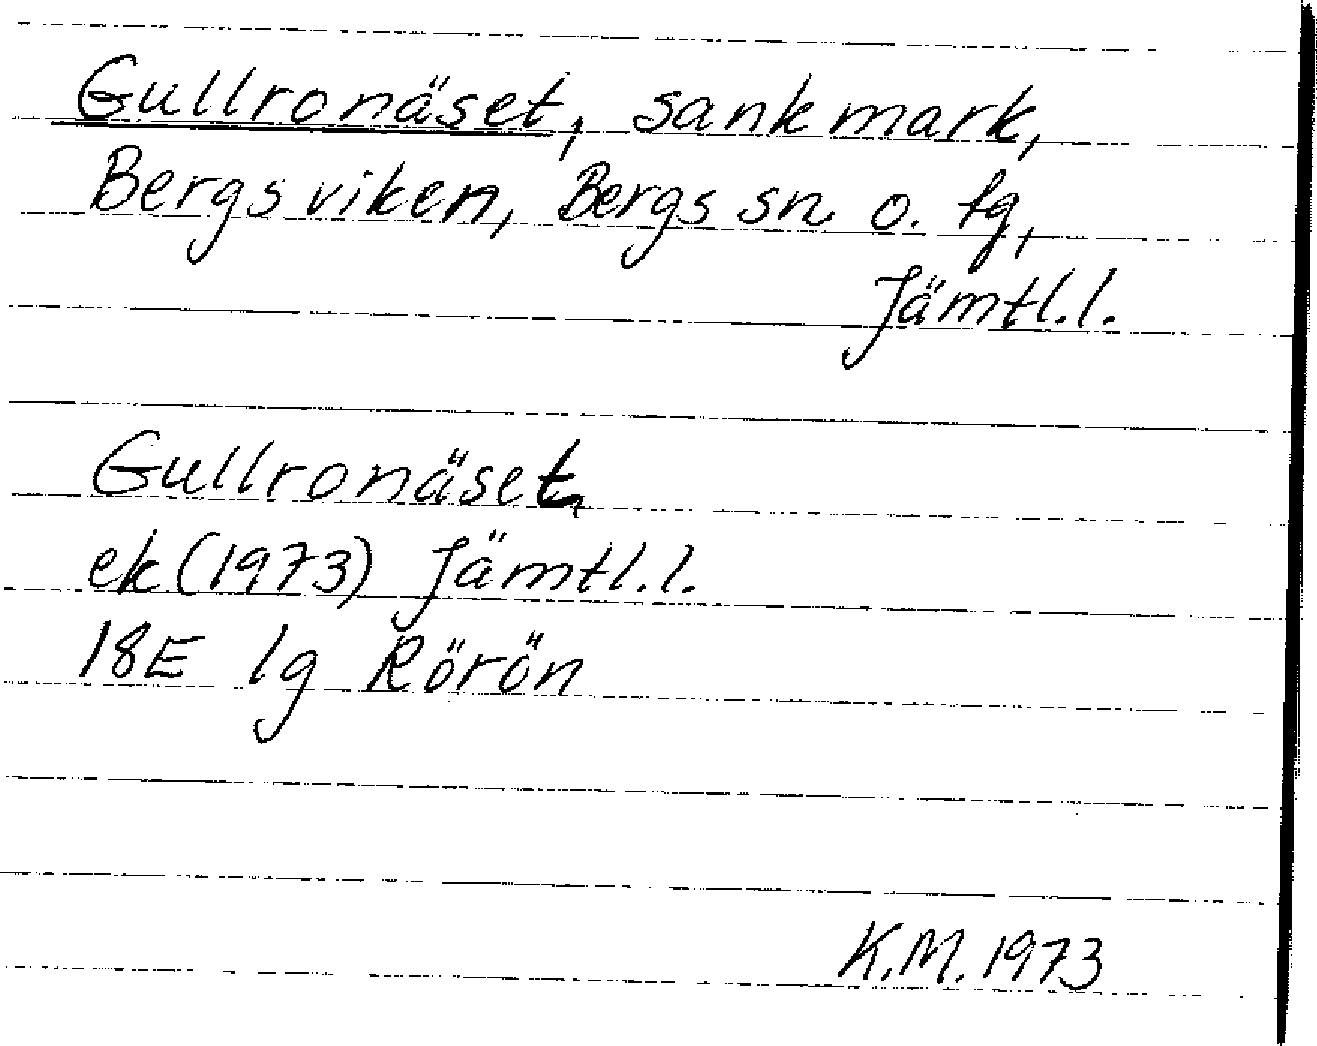 Gullronäset, sankmark,
Bergsviken, Bergs sn o. tg,
Jämtl.l.
Gullronäset,
ek (1973) Jämtl.l.
18E 1g Rörön
K.M. 1973